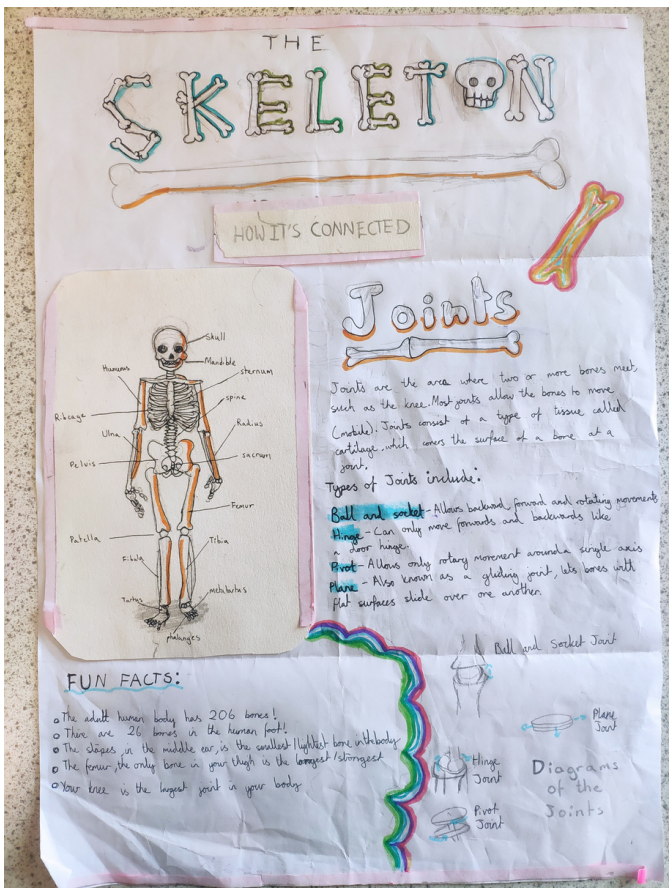 THE
SKELETON
HOW IT'S CONNECTED
Skull
Mandible
Humerus
sternum
spine
Ribcage
Radius
Ulna
sacrum
Pelvis
Femur
Patella
Tibia
Fibula
Tarsus
metatarsus
phalanges
Joints
Joints are the area where two or more bones meet,
such as the knee. Most joints allow the bones to move
(mobile). Joints consist of a type of tissue called
cartilage, which covers the surface of a bone at a
joint.
Types of Joints include:
Ball and socket - Allows backward, forward and rotating movements
Hinge - Can only move forwards and backwards like
a door hinge.
Pivot - Allows only rotary movement around a single axis
Plane - Also known as a gliding joint, lets bones with
flat surfaces slide over one another.
FUN FACTS:
The adult human body has 206 bones!
There are 26 bones in the human foot!
The stapes, in the middle ear, is the smallest/lightest bone in the body
The femur, the only bone in your thigh is the longest/strongest
Your knee is the largest joint in your body
Ball and Socket Joint
Plane
Joint
Hinge
Joint
Pivot
Joint
Diagrams
of the
Joints